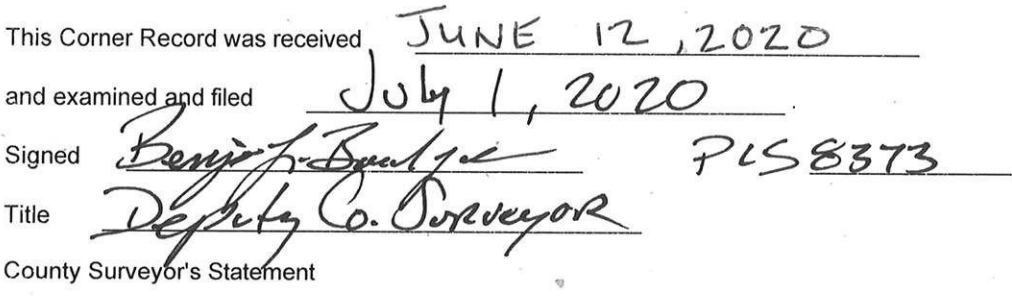 This Corner Record was received JUNE 12, 2020
and examined and filed July 1, 2020
Signed PLS 8373
Title Deputy Co. Surveyor
County Surveyor's Statement